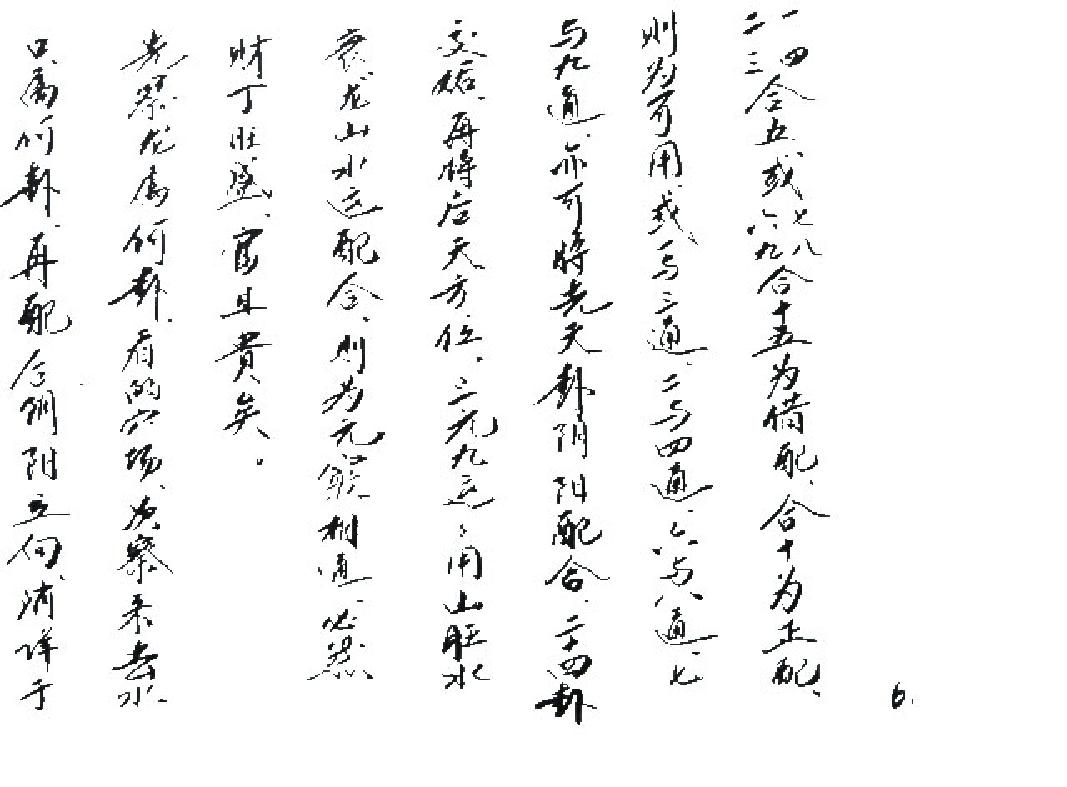 一四二三合五或七八六九合十五为借配、合十为正配、
则为可用、或一与三通、二与四通、六与八通、七
与九通、亦可将先天卦阴阳配合、六十四卦
交姤、再将后天方位、三元九运々用山旺水
衰、龙山水运配合、则为元窍相通、必然
财丁旺盛、富且贵矣。
先察龙属何卦、看的穴场、次察来去水
口属何卦、再配合阴阳立向、消详于
6.